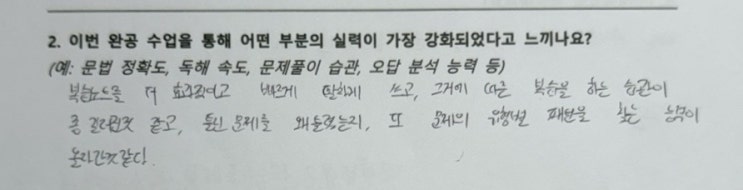 2. 이번 완공 수업을 통해 어떤 부분의 실력이 가장 강화되었다고 느끼나요?
(예: 문법 정확도, 독해 속도, 문제풀이 습관, 오답 분석 능력 등)
복습노트를 더 효과적이고 빠르게 탄탄하게 쓰고, 그거에 따른 복습을 하는 습관이
좀 길러진것 같고, 틀린 문제를 왜 틀렸는지, 또 문제의 유형별 패턴을 찾는 능력이
올라간것 같다!